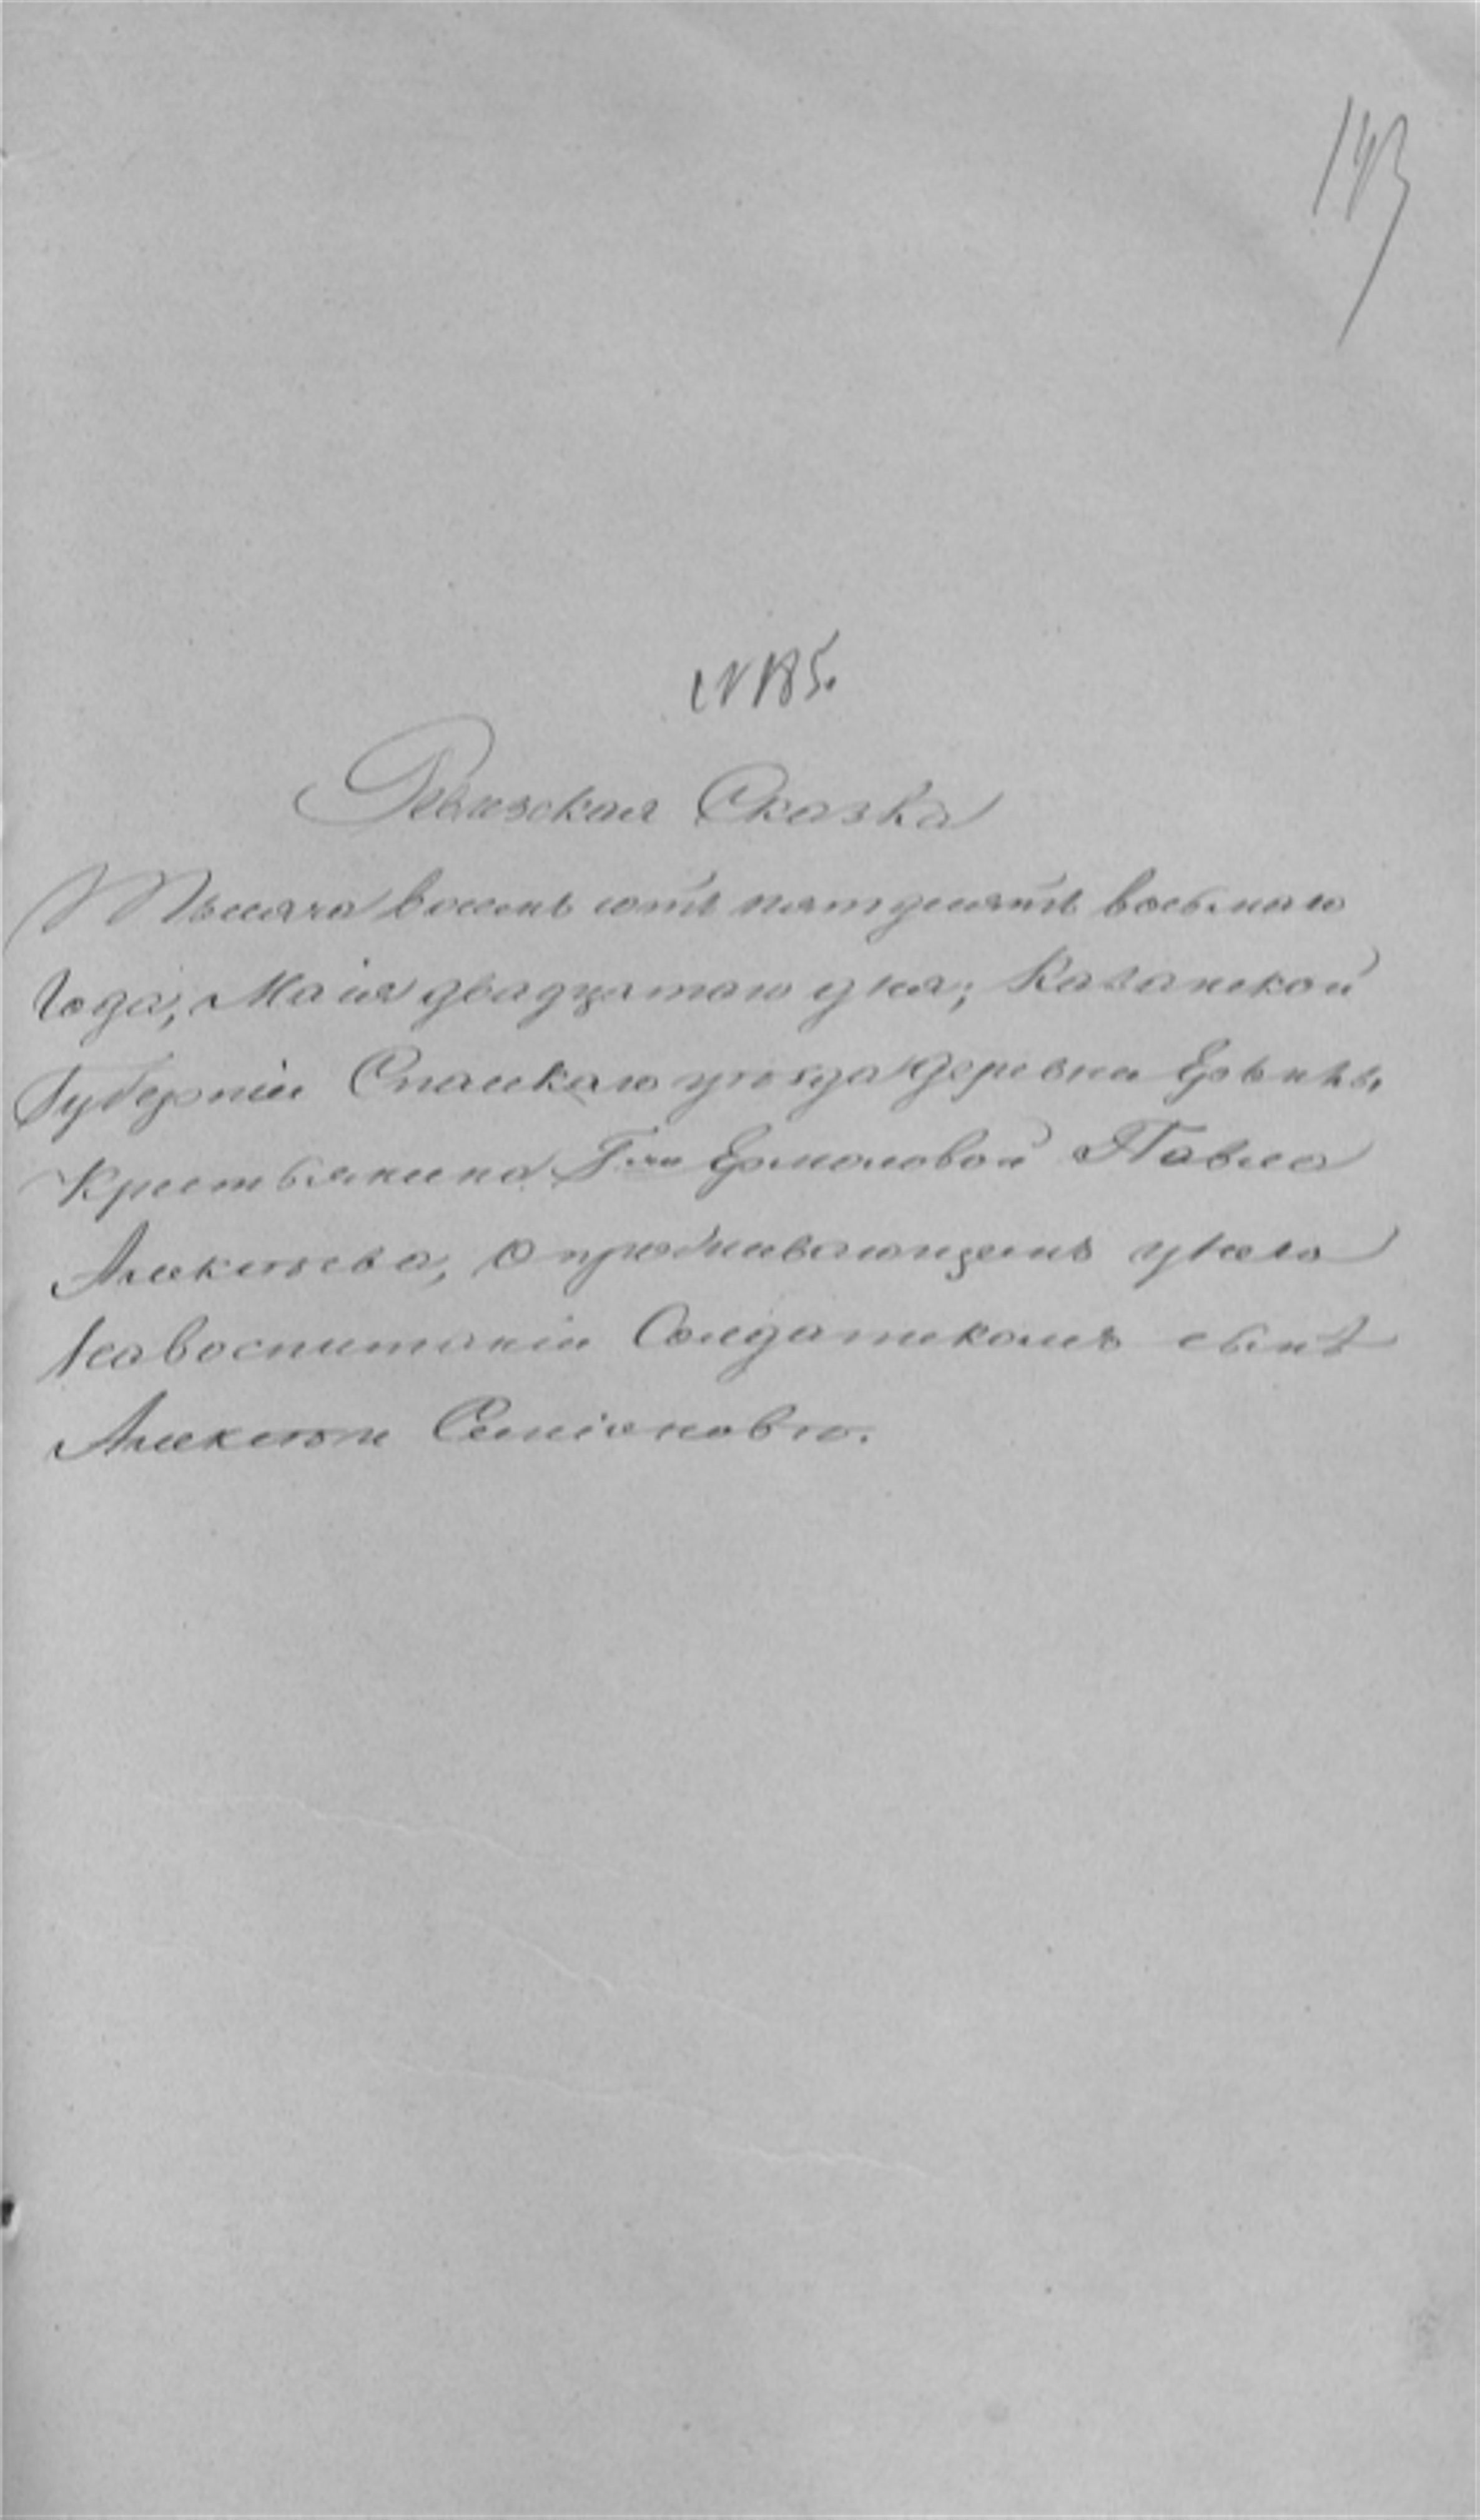 143
№ 185.
Ревизская Сказка
Тысяча восемь сотъ пятдесятъ восьмаго
Года, Маія двадцатаго дня; Казанской
Губерніи Спаскаго уезда деревни
Крестьянина Г-жи Ермоловой Павла
Алексѣева, о проживающемъ унего
навоспитаніи Солдатскомъ сынѣ
Алексѣѣ Семіоновѣ.